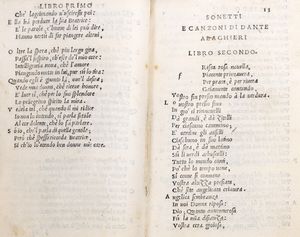 LIBRO PRIMO
Che lagrimando n'uscisse poi:
Ell' ha perduta la sua Beatrice:
E le parole, c'huom di lei può dire,
Hanno virtù di far piangere altrui.
Oltre la spera, che piu larga gira,
Passa'l sospiro, ch'esce del mio core:
Intelligentia nova, che l'Amore
Piangendo mette in lui, pur su lo tira:
Quando egli è giunto là, ove'l desira,
Vede una donna, che riceve honore,
E luce sì, che per lo suo splendore
Lo peregrino spirito la mira.
Vedela tal, che
io no lo intendo, sì parla sottile
Al cor dolente, che lo fa parlare.
So io, che'l parla di quella gentile;
Però che spesso ricorda Beatrice,
Sì ch'io lo'ntendo ben donne mie care.
13
SONETTI
E CANZONI DI DANTE
ALAGHIERI
LIBRO SECONDO.
Fresca rosa novella,
Piacente primavera,
Per prata, e per rivera
Gaiamente cantando,
Vostro fin presio mando à la verdura.
Lo vostro presio fino
In gio' si rinovelli
Da grandi, e da Zitelli
Per ciascuno camino;
E cantine gli augelli
Ciascuno in suo latino
Da sera, e da matino
Su li verdi arbuscelli:
Tutto lo mondo canti,
Po' che lo tempo vene,
Sì come si convene
Vostra altezza presiata,
Che sete angelicata criatura.
Angelica sembianza
In voi Donna riposa:
Dio, Quanto aventurosa
Fu la mia disianza:
Vostra cera gioiosa,